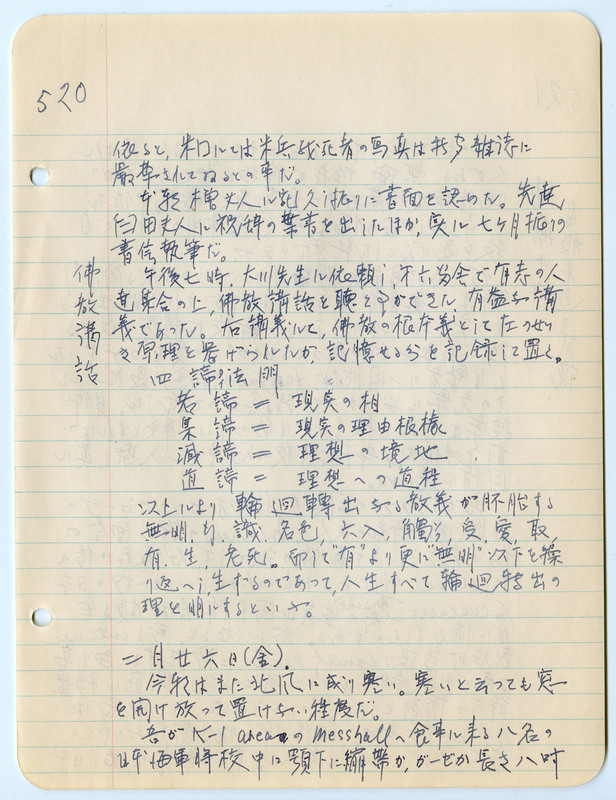 520
依ると、米国にては米兵戦死者の写真は 雑誌に
厳禁されてゐるとの事だ。
本朝 夫人に 久し振りに書面を認めた。先達
臼田夫人に祝辞の葉書を出したほか、実に七ヶ月振りの
書信執筆だ。
佛教講話
午後七時、大川先生に依頼し、 舎で有志の人
達集合の上、佛教講話を聴く事ができた。有益な講
義であった。右講義にて、佛教の根本義として左の
き原理を挙げられたが、記憶せる分を記録して置く。
四諦法門
苦諦 = 現実の相
集諦 = 現実の理由根據
滅諦 = 理想の境地
道諦 = 理想への道程
より輪廻轉出なる教義が胚胎する
無明、行、識、名色、六入、觸、受、愛、取、
有、生、老死。而して"有"より更に"無明"以下を繰
り返へし、生ずるのであって、人生すべて輪廻轉出の
理を明にするといふ。
二月廿六日(金).
今朝はまた北風に戻り寒い。寒いと云っても窓
を開け放って置けない程度だ。
吾がK-1 areaのmesshallへ食事に来る八名の
日本海軍将校中に顎下に繃帯か、ガーゼか長さ八吋